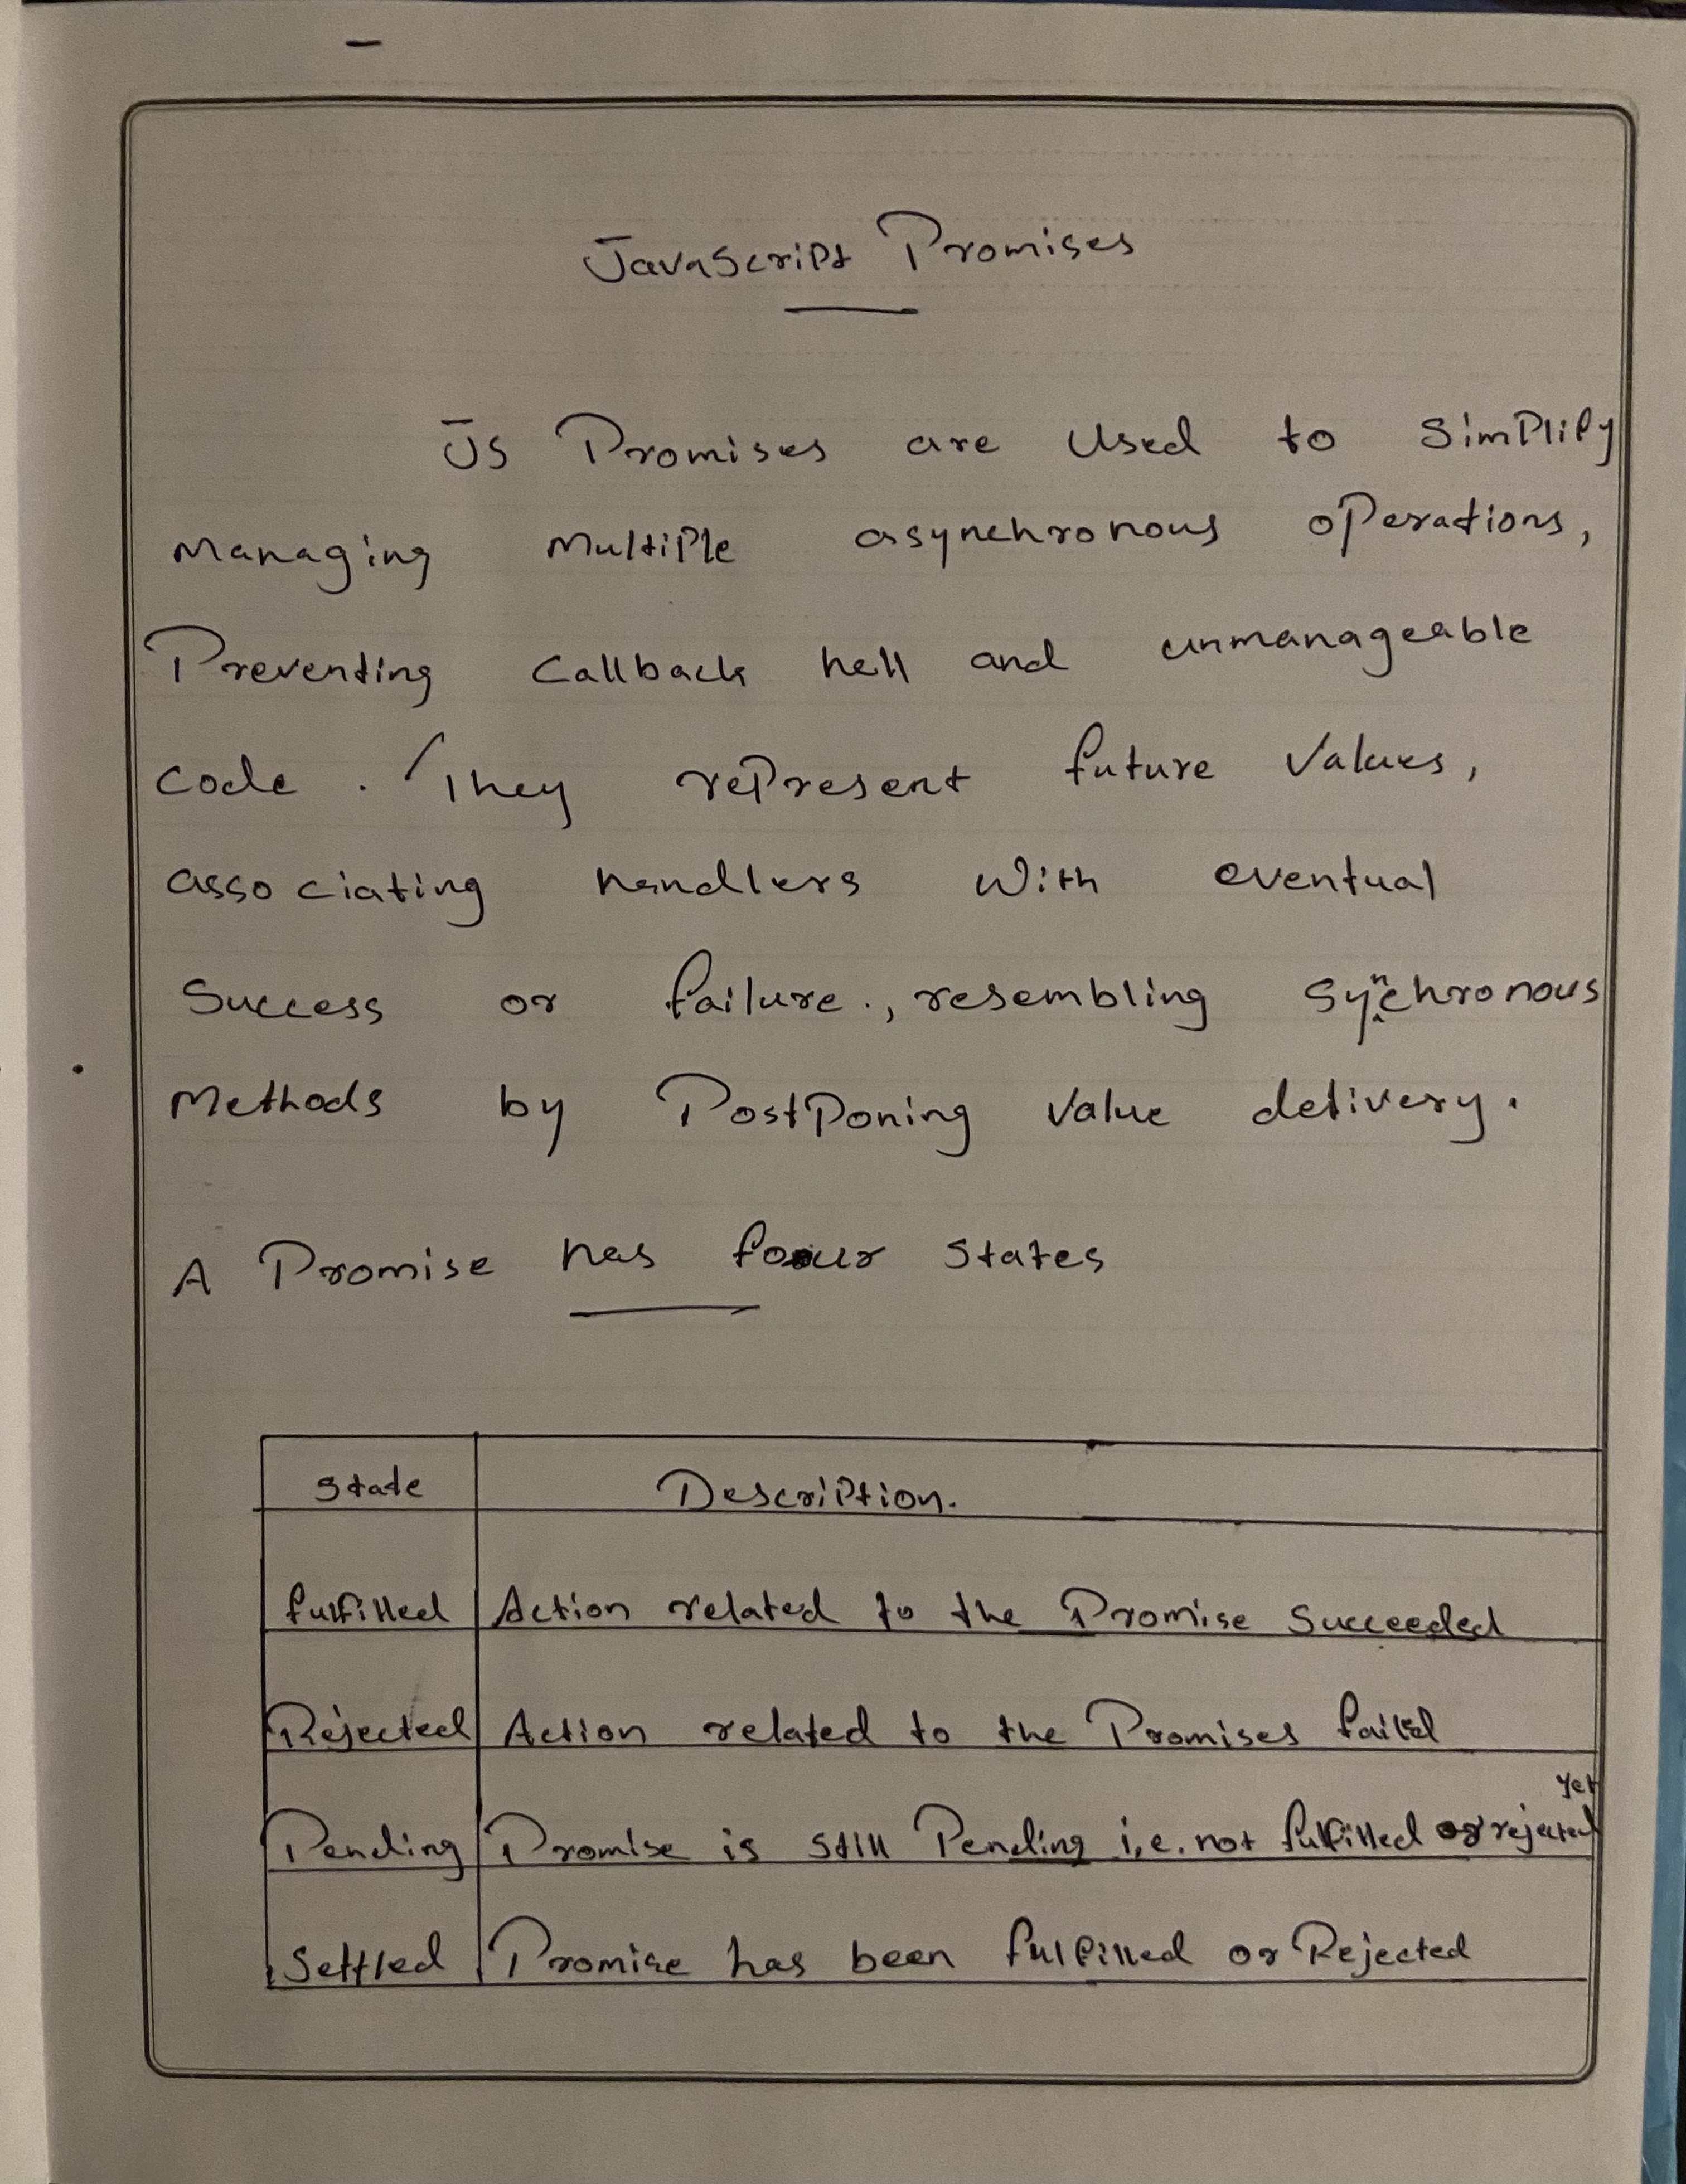 JavaScript Promises
JS Promises are used to simplify
managing multiple asynchronous operations,
Preventing callback hell and unmanageable
code. They represent future values,
associating handlers with eventual
success or failure., resembling synchronous
methods by postponing value delivery.
A Promise has four states
State Description.
fulfilled Action related to the Promise succeeded
Rejected Action related to the Promises failed
Pending Promise is still Pending i.e. not fulfilled or rejected yet
Settled Promise has been fulfilled or Rejected